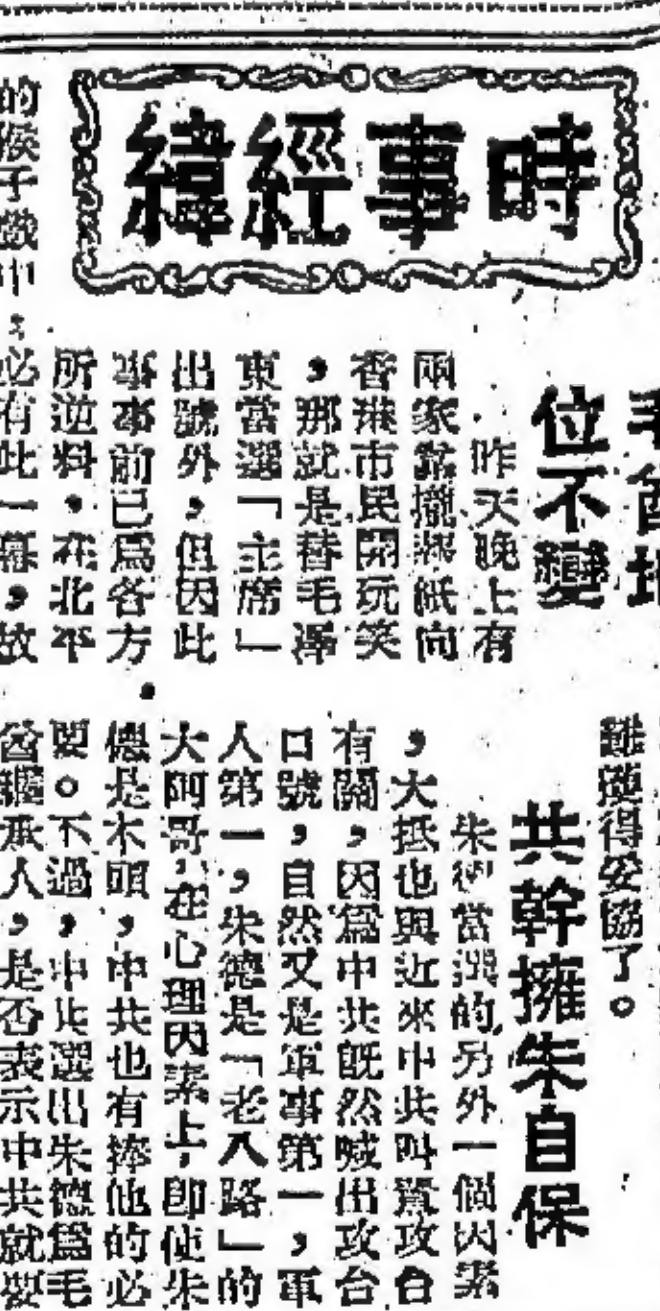 時事經緯
毛酋地
位不變
昨天晚上有
兩家靠攏報紙向
香港市民開玩笑
，那就是替毛澤
東當選「主席」
出號外，但因此
事事前已爲各方
所逆料，在北平
必有此一幕，故
的猴子戲中，
龇牙得妥協了。
共幹擁朱自保
朱德當選的另外一個因素
，大抵也與近來中共叫囂攻台
有關，因爲中共既然喊出攻台
口號，自然又是軍事第一，軍
人第一，朱德是「老八路」的
大阿哥，在心理因素上，即使朱
德是木頭，中共也有捧他的必
要。不過，中共選出朱德爲毛
酋繼承人，是否表示中共就要